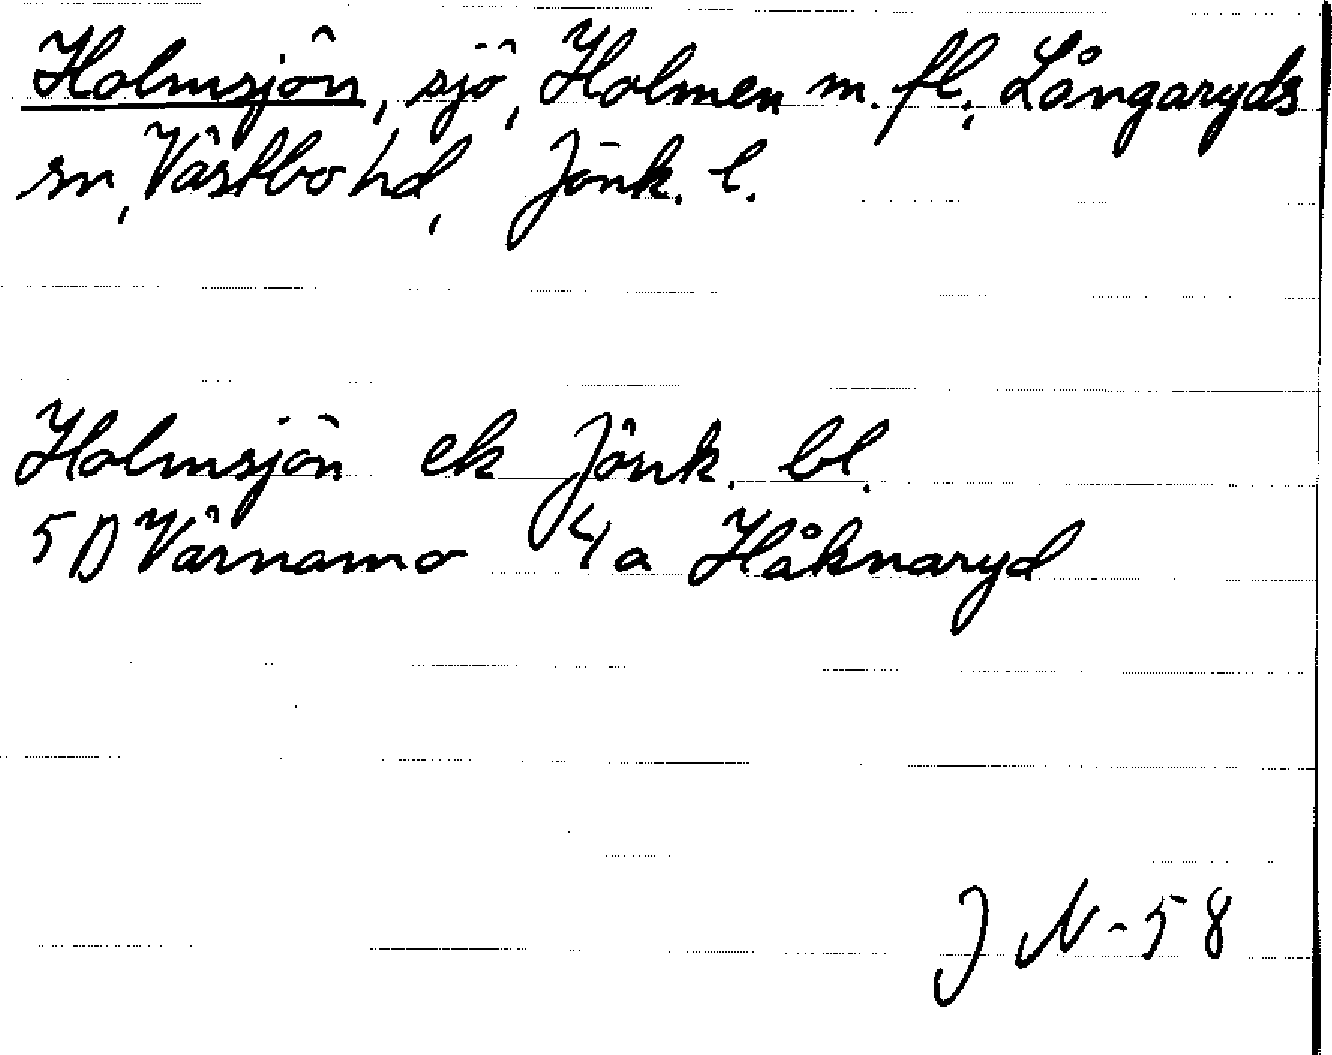 Holmsjön, sjö, Holmen m. fl., Långaryds
sn, Västbo hd, Jönk. l.
Holmsjön ek Jönk. bl.
5D Värnamo 4a Håknaryd
J N-58